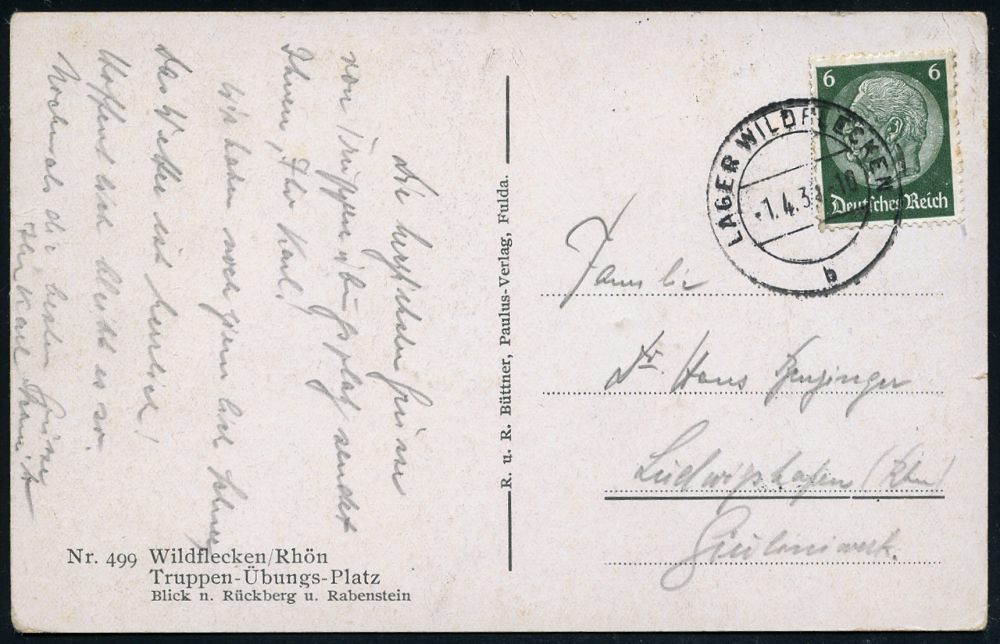 Die herzlichsten Grüsse
vom Truppenübungsplatz sendet
Ihnen, Ihr Karl!
Wir haben noch ganz Schnee
das Wetter ist herrlich!
Hoffentlich bleibt es so.
Nochmals die besten Grüsse
Ihr Karl
Nr. 499 Wildflecken/Rhön
Truppen-Übungs-Platz
Blick n. Rückberg u. Rabenstein
R. u. R. Büttner, Paulus-Verlag, Fulda.
6 6
Deutsches Reich
LAGER WILDFLECKEN
-1.4.3 -18
b
Familie
Dr Hans
Ludwigshafen (Rhn)